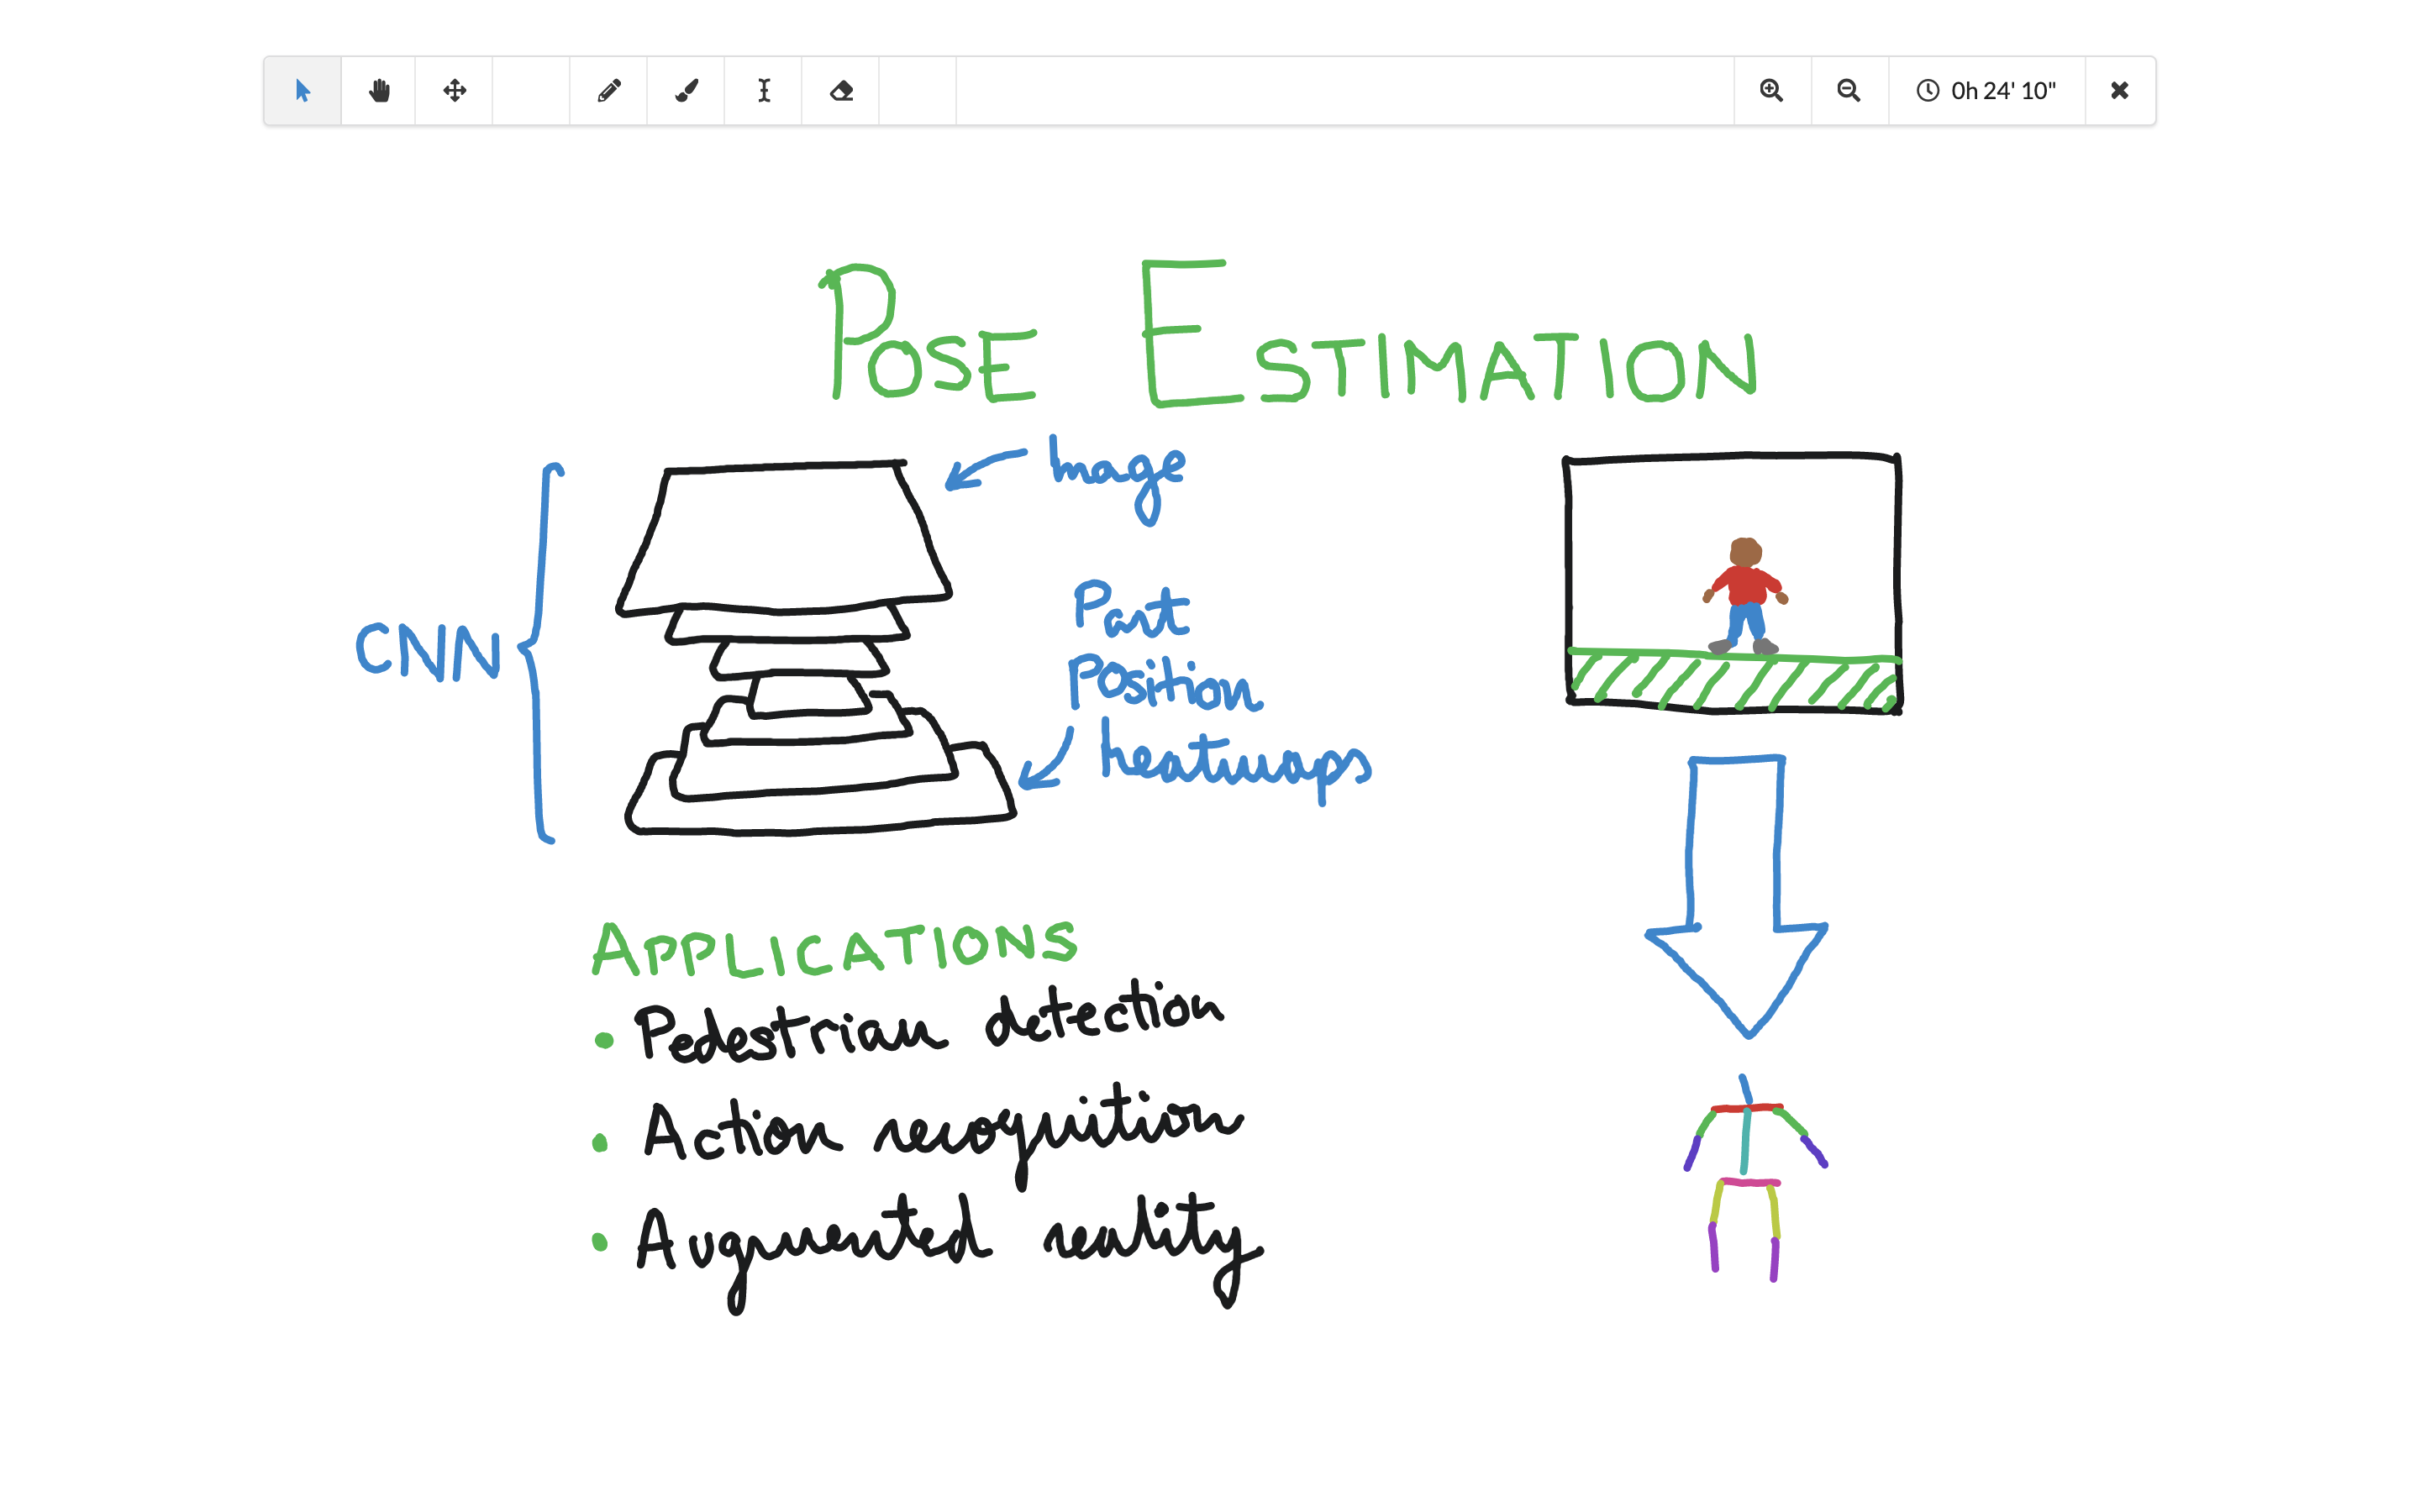 0h 24' 10"
POSE ESTIMATION
Image
CNN
Part
Position
heatmap
APPLICATIONS
• Pedestrian detection
• Action recognition
• Augmented reality